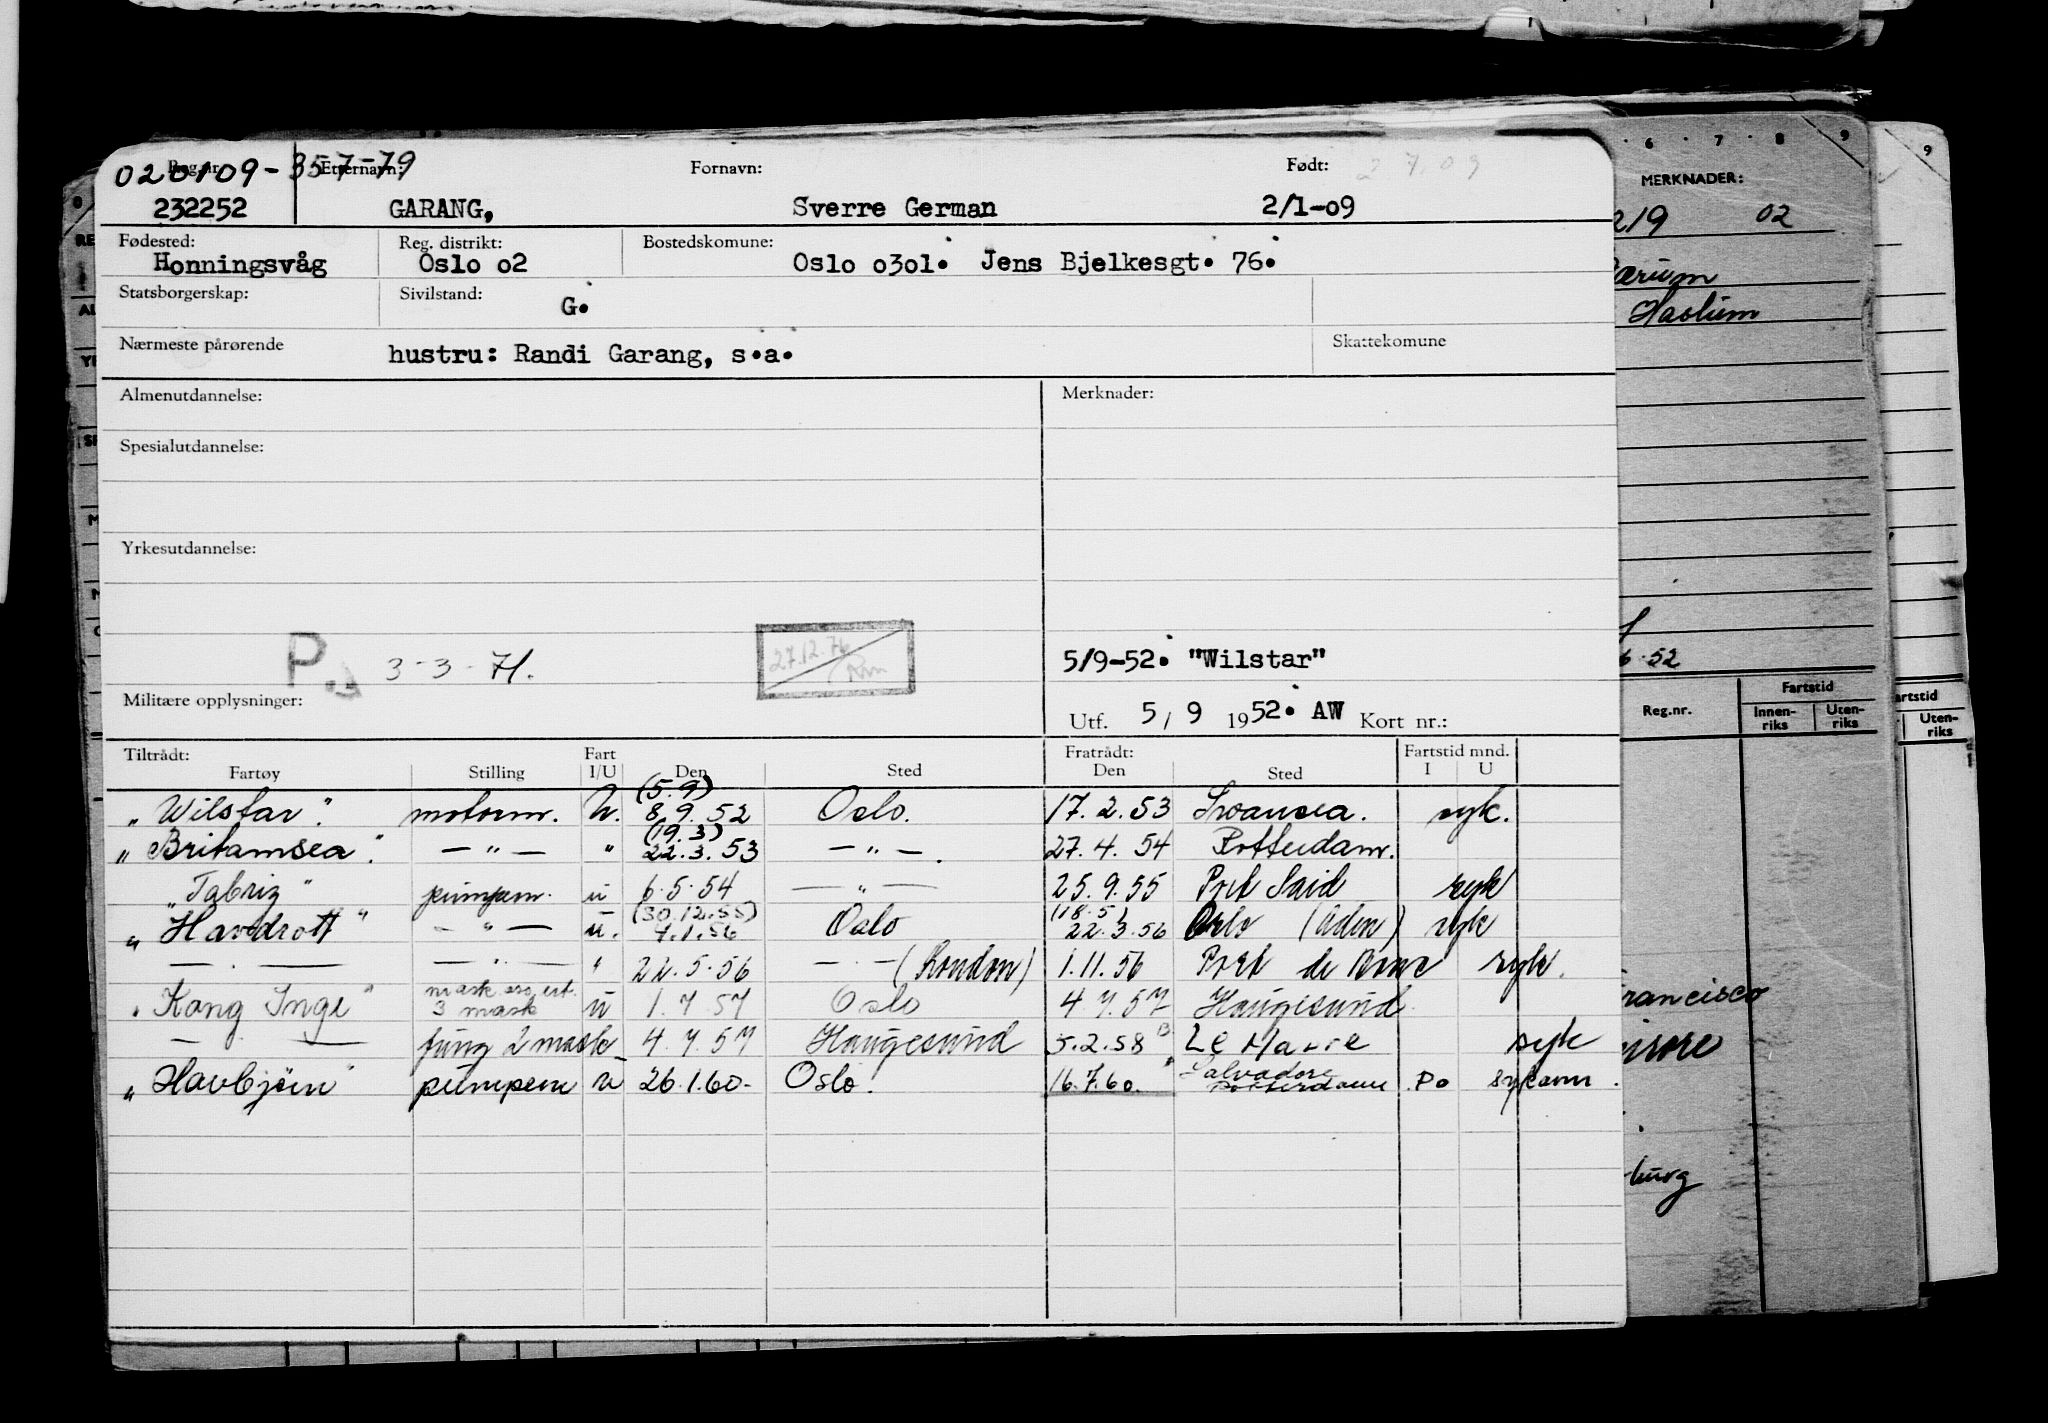 020109-35779
Reg.nr. Etternavn: Fornavn: Født:
232252 GARANG, Sverre German 2/1-09
Fødested: Reg. distrikt: Bostedskomune:
Honningsvåg Oslo o2 Oslo o3ol. Jens Bjelkesgt. 76.
Statsborgerskap: Sivilstand: G.
Nærmeste pårørende hustru: Randi Garang, s.a. Skattekomune
Almenutdannelse: Merknader:
Spesialutdannelse:
Yrkesutdannelse:
P. 3-3-71. 27.12.76 5/9-52. "Wilstar"
Militære opplysninger: Utf. 5/9 1952. AW Kort nr.:
Tiltrådt: Fart Fratrådt: Fartstid mnd.
Fartøy Stilling I/U Den Sted Den Sted I U
(5.9)
"Wilstar". motorm. u. 8.9.52 Oslo. 17.2.53 Swansea. syk.
(19.3)
"Britamsea". — " — " 22.3.53 — " —. 27.4.54 Rotterdam.
"Tabriz" pumpem. u 6.5.54 — " — 25.9.55 Port Said syk
(30.12.55) (18.5)
"Havdrott" — " — u. 4.1.56 Oslo 22.3.56 Oslo (Aden) syk
— " — — " — " 22.5.56 — " — (London) 1.11.56 Port de Bouc syk.
"Kong Inge" 3 mask u 1.7.57 Oslo 4.7.57 Haugesund.
— " — fung 2 mask 4.7.57 Haugesund 5.2.58 Le Havre syk
"Havbjörn" pumpem u 26.1.60- Oslo. 16.7.60. Salvadore Rotterdam Po sykam.
6 7 8 9
MERKNADER:
219 02
Bærum
Haslum
6.52
Fartstid
Reg.nr. Innen-riks Uten-riks
Francisco
burg
9
artstid
Uten-riks